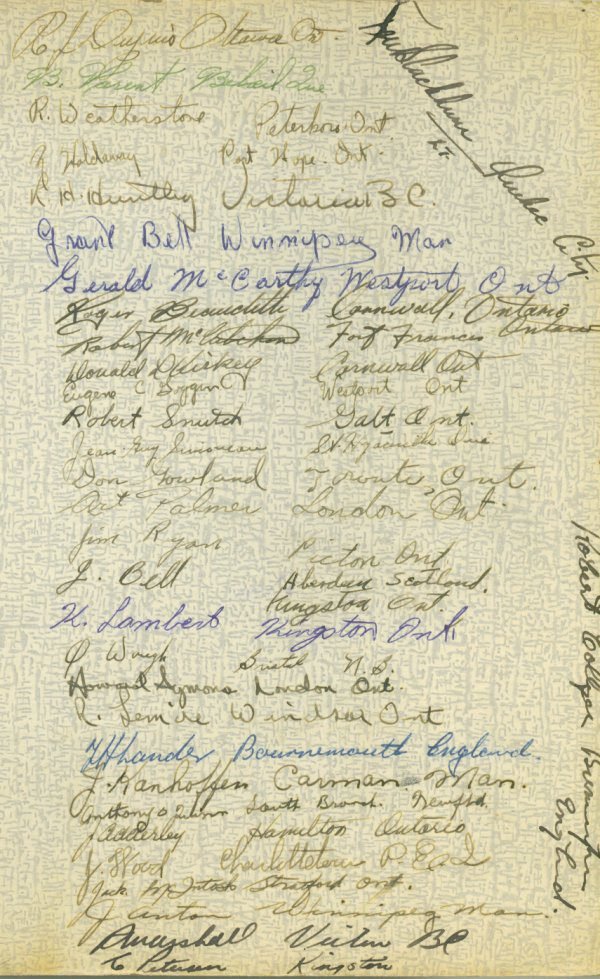 R. J. Dupuis Ottawa Ont.
B. Parent Que
R. Weatherstone Peterboro. Ont.
Holdaway Port Hope. Ont.
R. H. Huntley Victoria B C.
Grant Bell Winnipeg Man
Gerald McCarthy Westport Ont
Roger Cornwall, Ontario
Robert Fort Frances Ontario
Donald Cornwall Ont
Eugene C Westport Ont
Robert Galt Ont.
Jean-Guy St. Hyacinthe Que
Don Gowland Toronto, Ont.
Art Palmer London Ont.
Jim Ryan Picton Ont
J. Bell Aberdeen Scotland.
Kingston Ont.
K. Lambert Kingston Ont.
Waugh Bristol N. B.
Howard Symons London Ont.
R. Lemire Windsor Ont
Bournemouth England.
J. Kanhoffen Carman Man.
Anthony Quinn South Branch. Newfld.
J Adderley Hamilton Ontario
J. Wood Charlottetown P. E. I
Jack McIntosh Stratford Ont.
J Anton Winnipeg Man.
Marshall Victoria BC
C Petersen Kingston
Blackburn Quebec City
Robert Collyer Birmingham England.